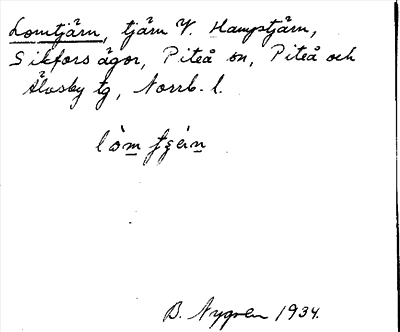 Lomtjärn, tjärn V. Hampstjärn,
Sikfors ägor, Piteå sn, Piteå och
Älvsby tg, Norrb. l.
B. Nygren 1934.